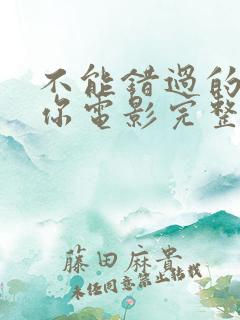 不能错過的
你电影完整
藤田麻貴
未经同意禁止转载